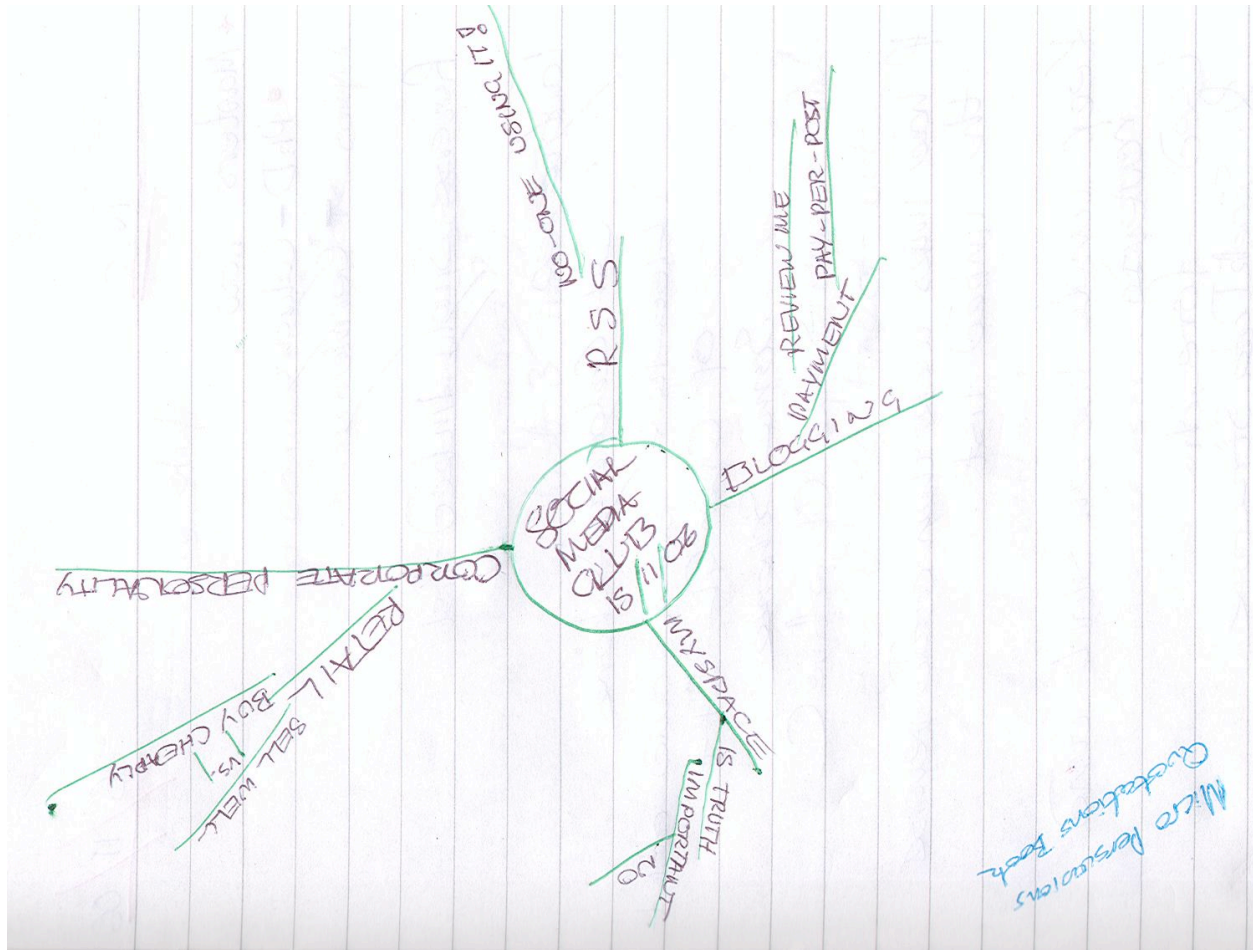 SOCIAL
MEDIA
CLUB
15 11 06
RSS
NO-ONE USING IT!
BLOGGING
PAYMENT
REVIEW ME
PAY-PER-POST
MYSPACE
IS TRUTH
IMPORTANT
NO
CORPORATE PERSONALITY
RETAIL
BUY CHEAPLY
VS.
SELL WELL
Micro Persuasions
Quotations Book